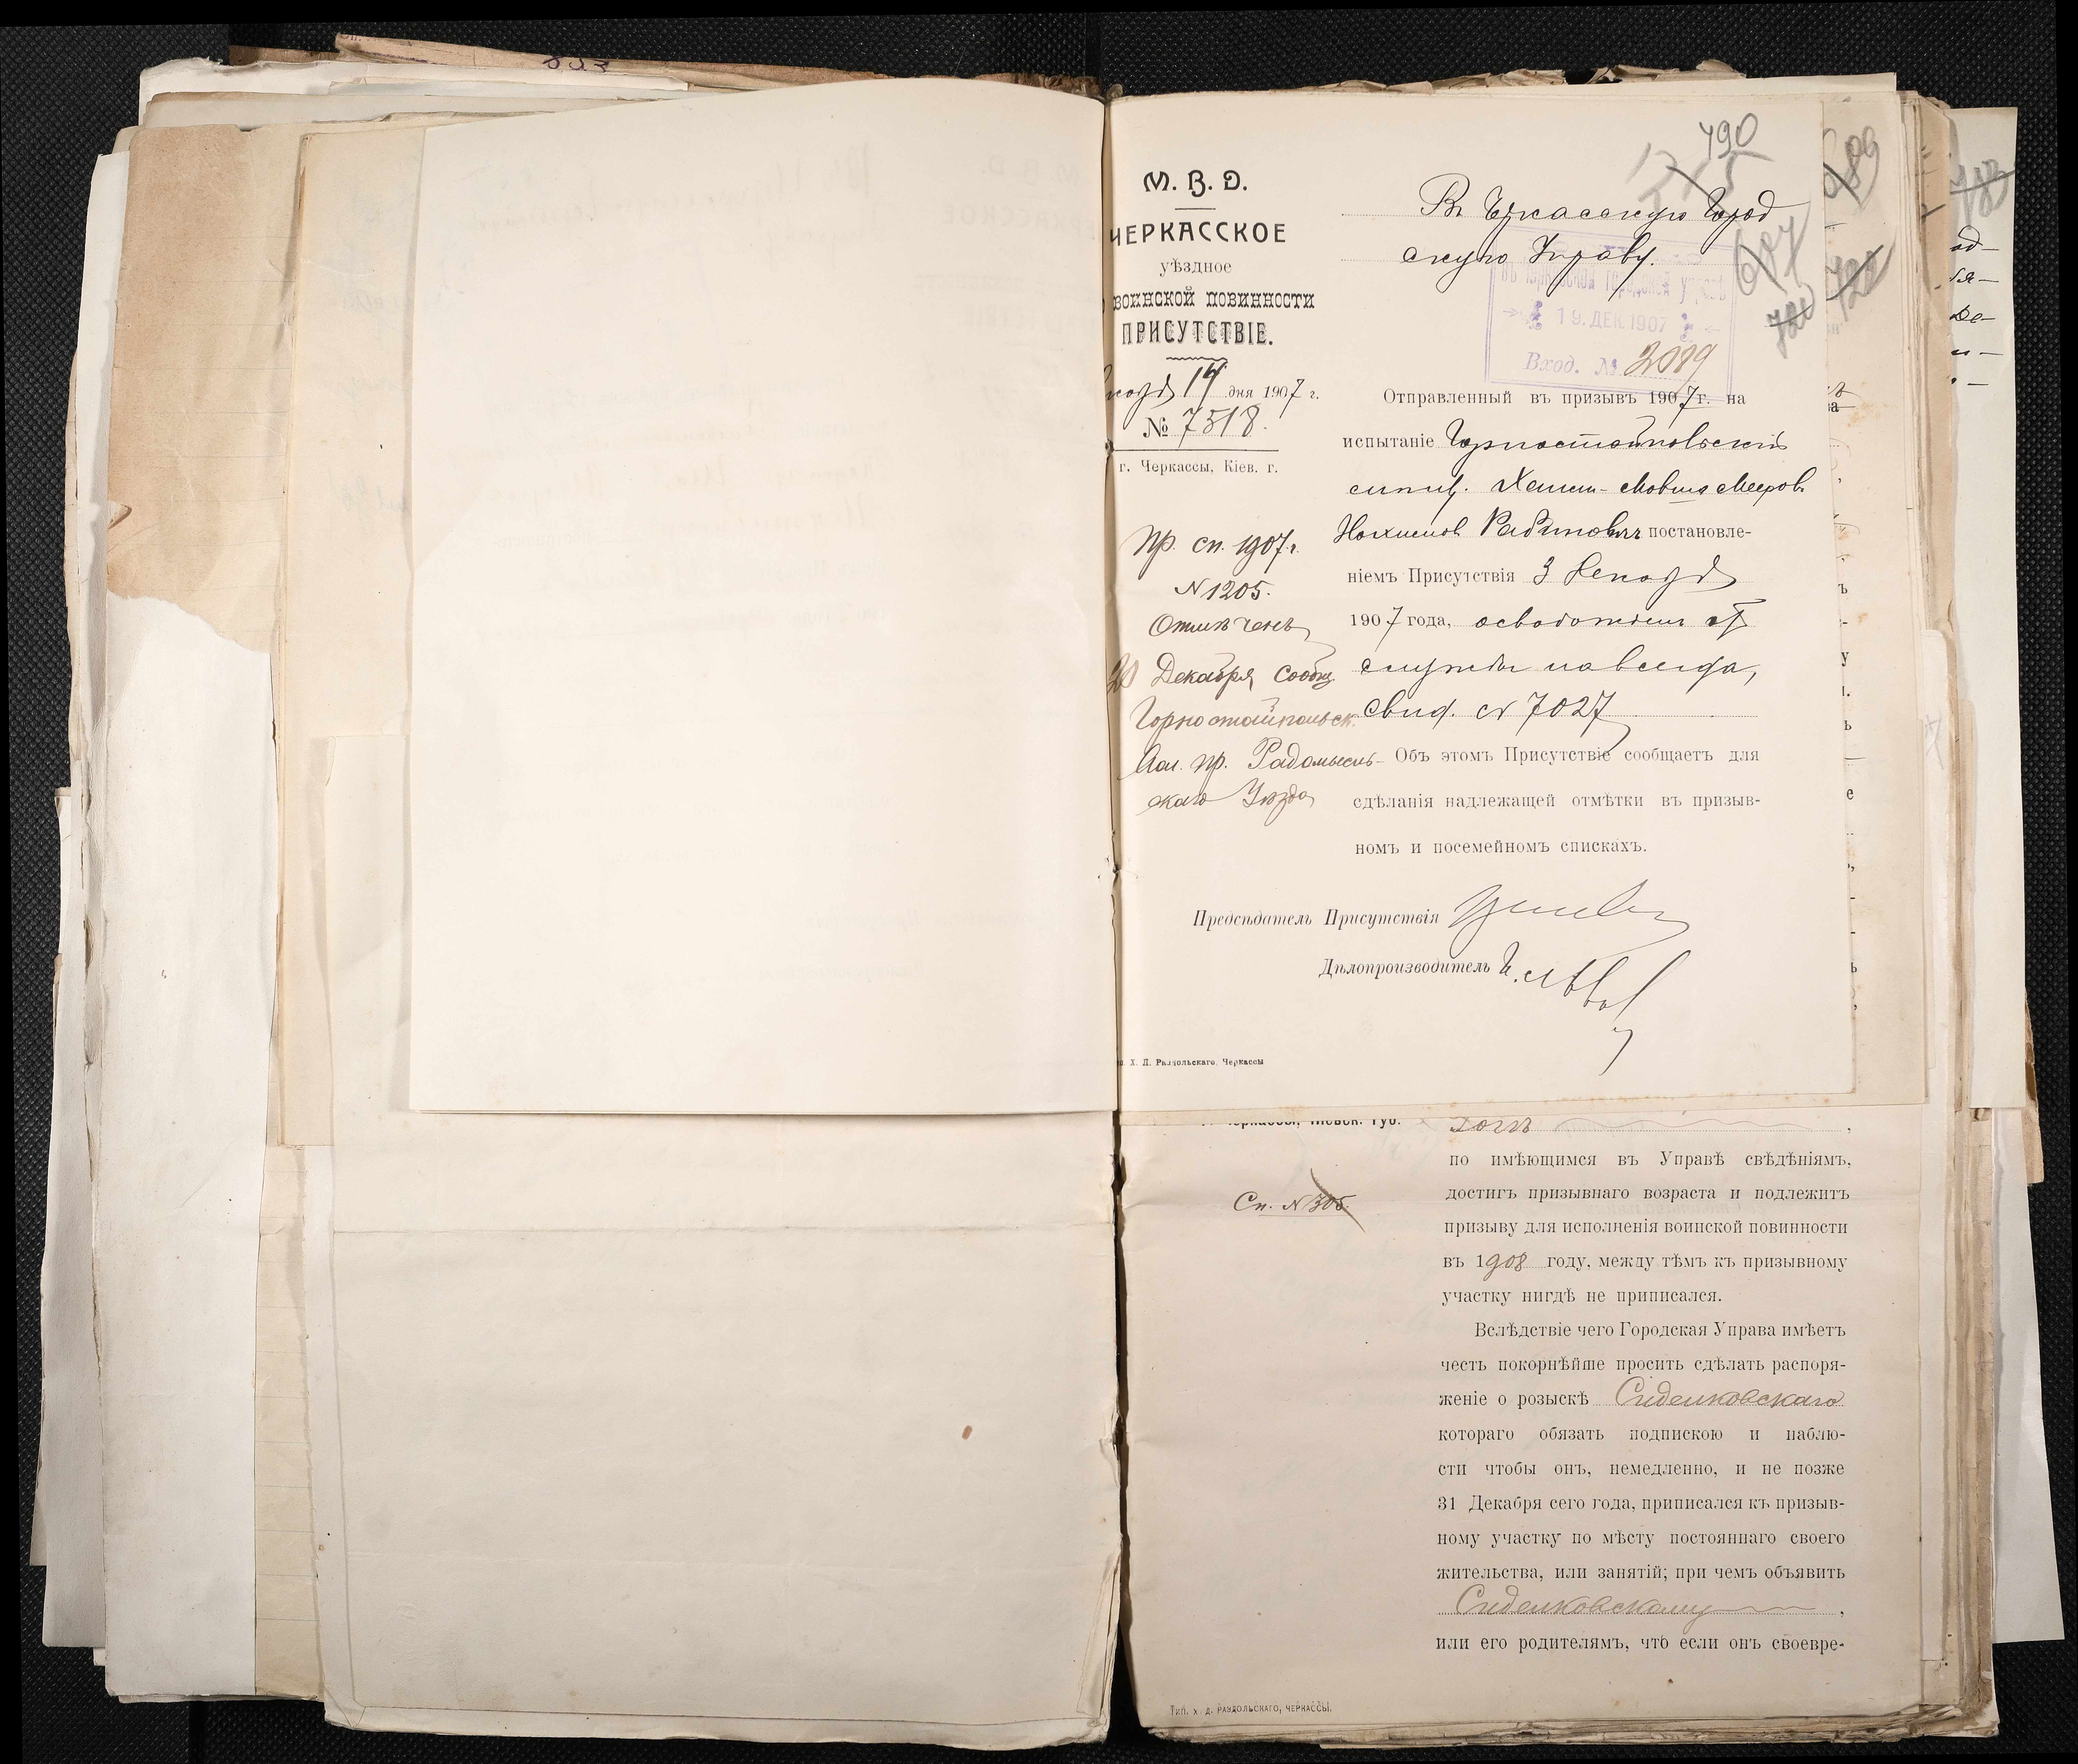 М. В. Д.
ЧЕРКАССКОЕ
уѣздное
воинской повинности
ПРИСУТСТВІЕ.
14 дня 1907 г.
№ 7518.
г. Черкассы, Кіев. г.
Пр. сп. 1907 г.
N 1205.
Отмѣченъ
20 Декабря сообщ.
Горностайпольск.
Мѣщ. пр. Радомысль-
скаго Уѣзда
790
Въ Черкасскую Город
скую Управу.
въ Черкасской городской управѣ
19. ДЕК. 1907
Вход. № 2089
Отправленный въ призывъ 1907 г. на
испытаніе Горностайпольскій
Мовша Мееров
Нохимов Рабинович постановле-
ніемъ Присутствія 3 Декабря
1907 года, освобожденъ от
службы навсегда,
свид. N 7027
Объ этомъ Присутствіе сообщаетъ для
сдѣланія надлежащей отмѣтки въ призыв-
номъ и посемейномъ спискахъ.
Предсѣдатель Присутствія
Дѣлопроизводитель
Х. Д. Раздольскаго, Черкассы
689
607
720
722
713
Черкассы, Кіевск. Губ.
Сп. N 306.
по имѣющимся въ Управѣ свѣдѣніямъ,
достигъ призывнаго возраста и подлежитъ
призыву для исполненія воинской повинности
въ 1908 году, между тѣмъ къ призывному
участку нигдѣ не приписался.
Вслѣдствіе чего Городская Управа имѣетъ
честь покорнѣйше просить сдѣлать распоря-
женіе о розыскѣ Сиденковскаго
котораго обязать подпискою и наблю-
сти чтобы онъ, немедленно, и не позже
31 Декабря сего года, приписался къ призыв-
ному участку по мѣсту постояннаго своего
жительства, или занятій; при чемъ объявить
Сиденковскому ,
или его родителямъ, что если онъ своевре-
Тип. Х. Д. РАЗДОЛЬСКАГО, ЧЕРКАССЫ.